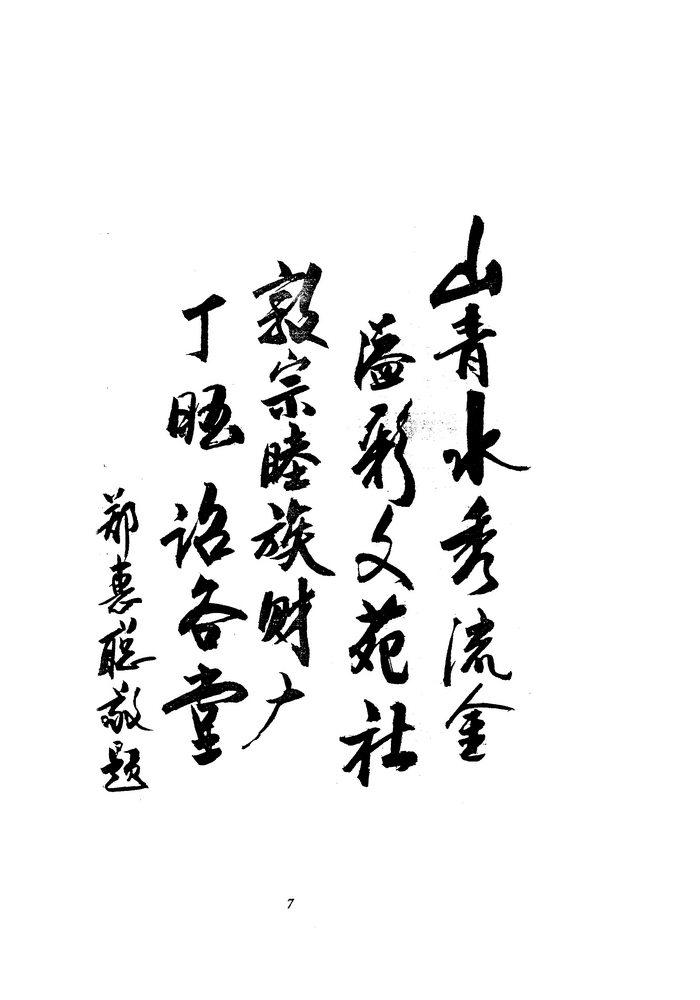 山青水秀流金
溢彩文苑社
敦宗睦族财广
丁旺诒谷堂
郑惠聪敬题
7